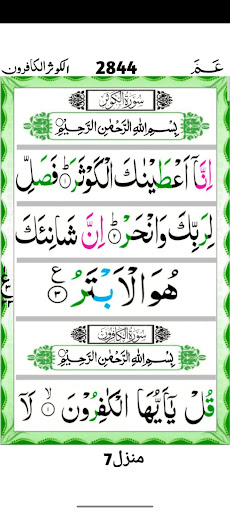 الكوثر الكافرون 2844 عَمَّ
سُورَةُ الْكَوْثَرِ
بِسْمِ اللهِ الرَّحْمٰنِ الرَّحِيْمِ
اِنَّاۤ اَعْطَيْنٰكَ الْكَوْثَرَ ۝١ فَصَلِّ
لِرَبِّكَ وَانْحَرْ ۝٢ اِنَّ شَانِئَكَ
هُوَ الْاَبْتَرُ ۝٣ ع
سُورَةُ الْكَافِرُونَ
بِسْمِ اللهِ الرَّحْمٰنِ الرَّحِيْمِ
قُلْ يٰۤاَيُّهَا الْكٰفِرُوْنَ ۝١ لَاۤ
منزل7